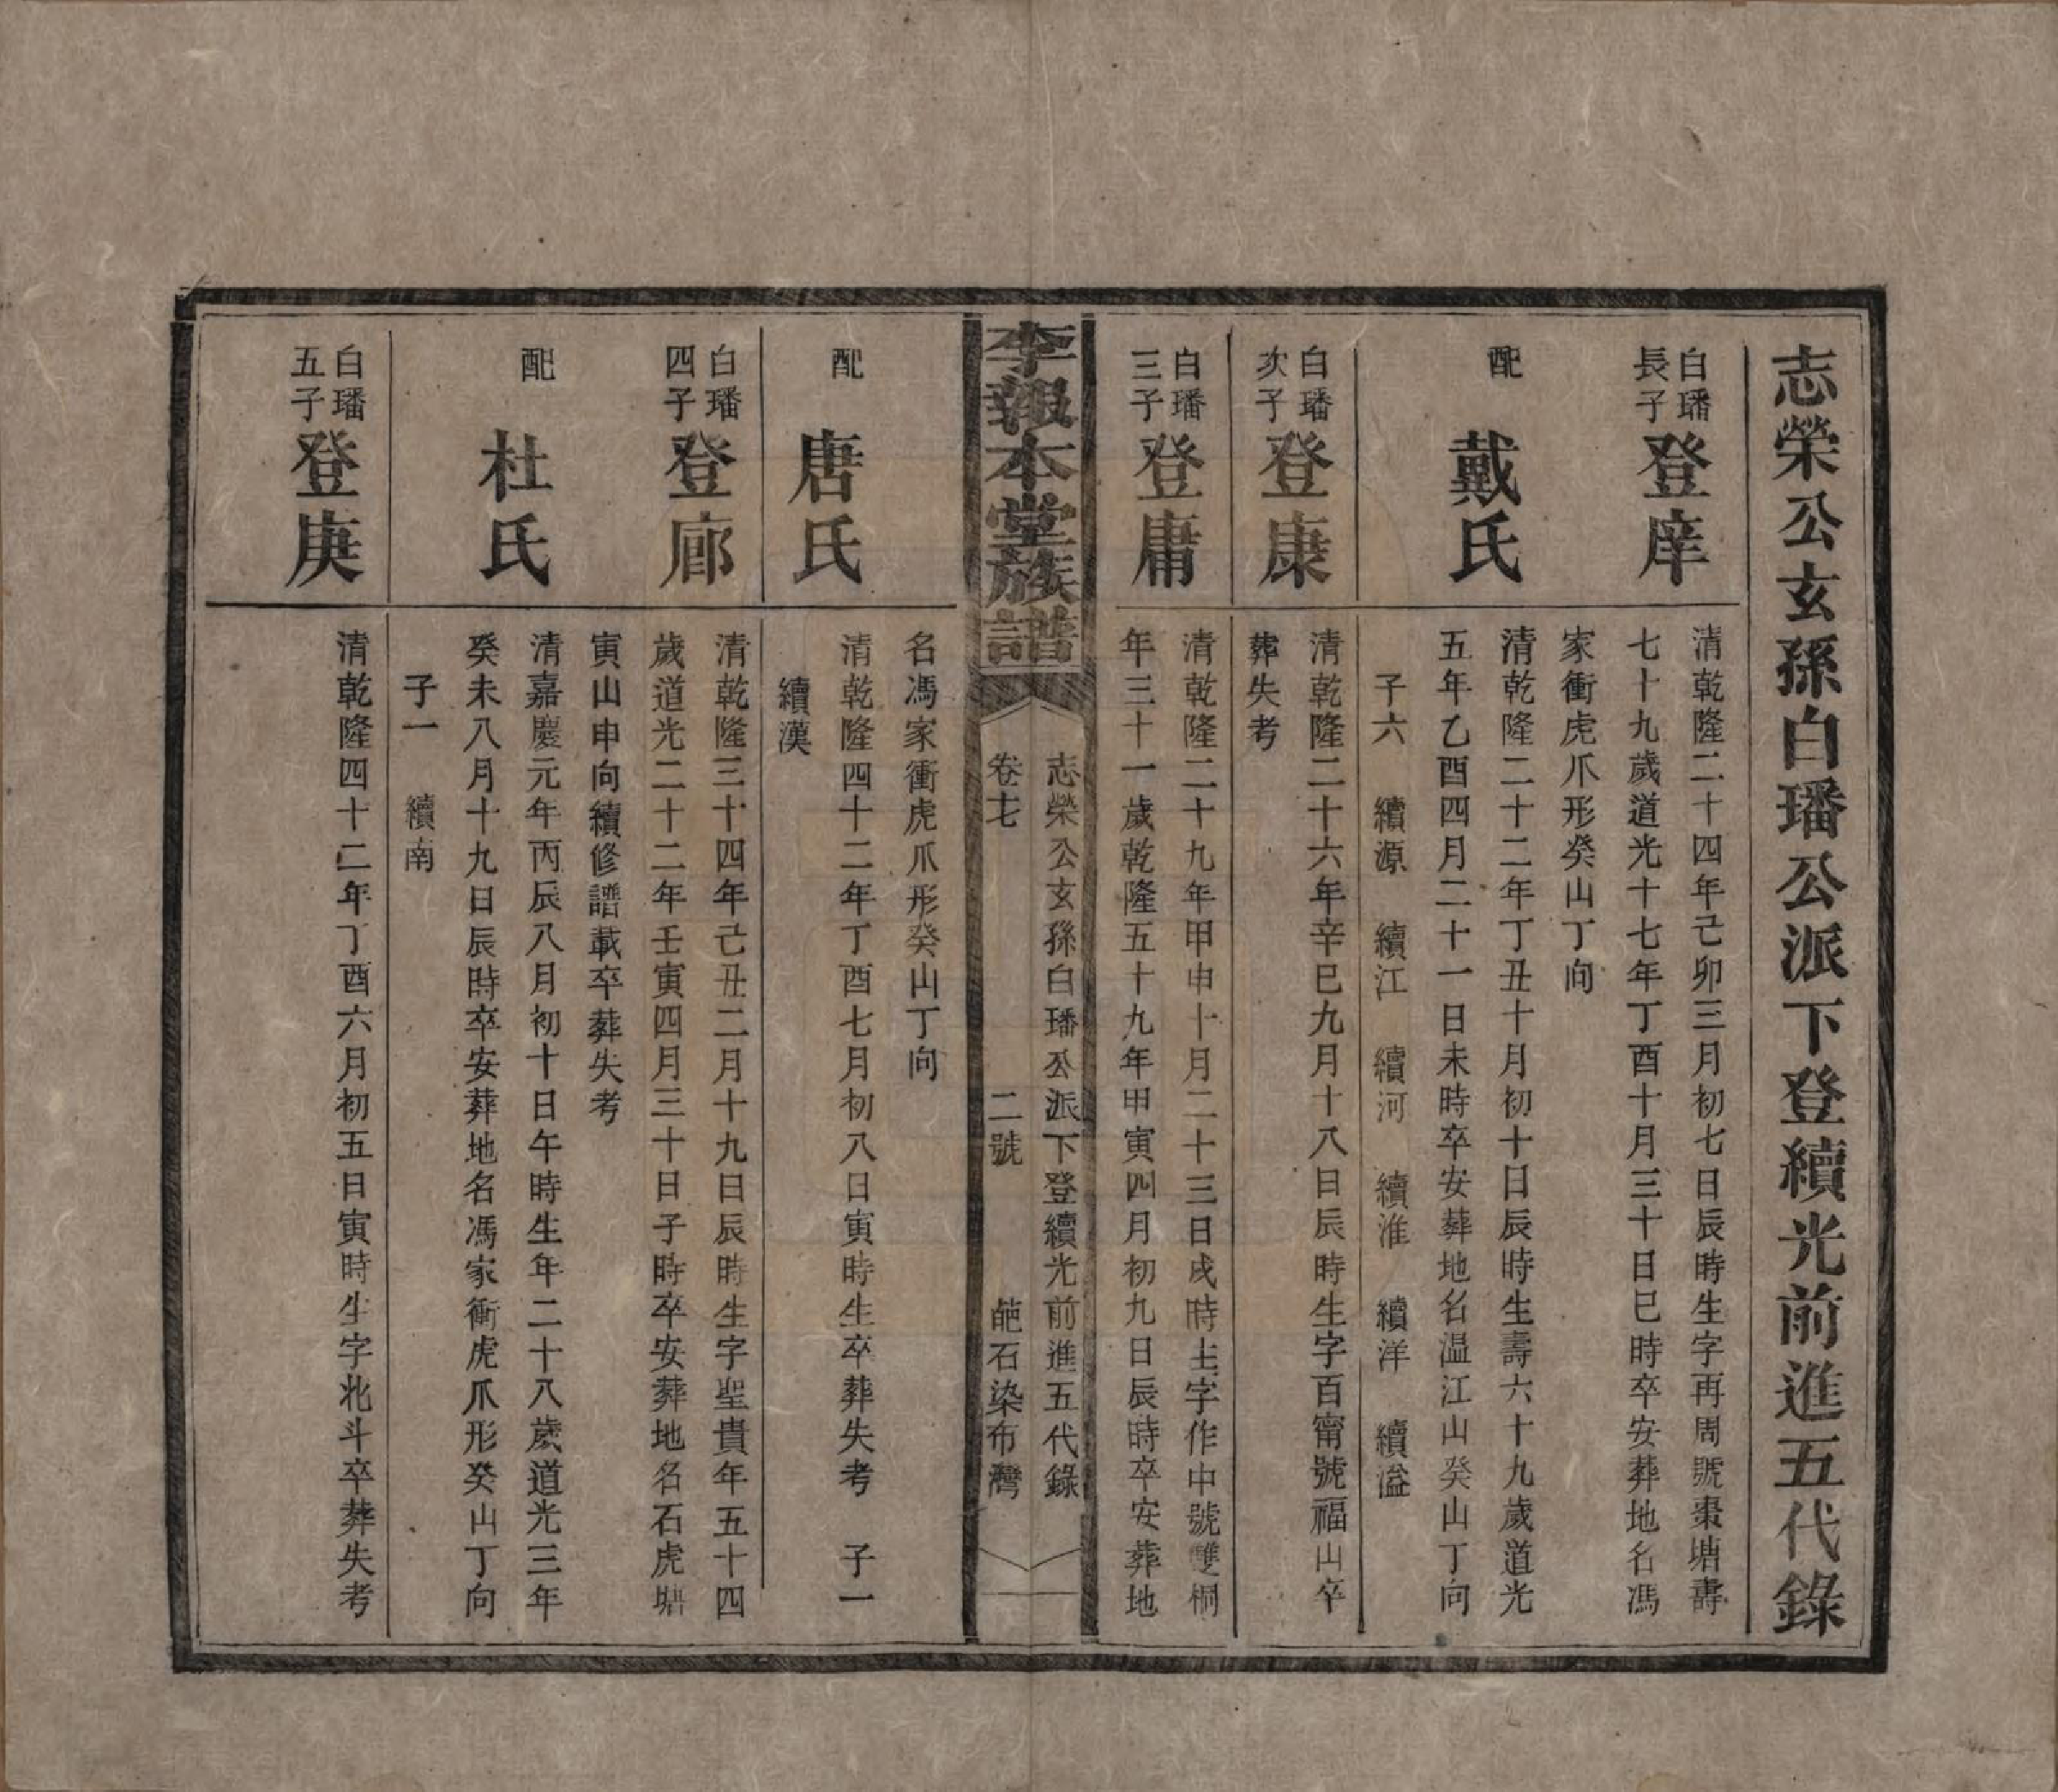 志榮公玄孫白璠公派下登續光前進五代錄
白璠
長子
登庠
清乾隆二十四年己卯三月初七日辰時生字再周號棗塘壽
七十九歲道光十七年丁酉十月三十日巳時卒安葬地名馮
家衝虎爪形癸山丁向
配
戴氏
清乾隆二十二年丁丑十月初十日辰時生壽六十九歲道光
五年乙酉四月二十一日未時卒安葬地名溫江山癸山丁向
子六 續源 續江 續河 續淮 續洋 續溢
白璠
次子
登康
清乾隆二十六年辛巳九月十八日辰時生字百甯號福山卒
葬失考
白璠
三子
登庸
清乾隆二十九年甲申十月二十三日戌時生字作中號雙桐
年三十一歲乾隆五十九年甲寅四月初九日辰時卒安葬地
李報本堂族譜
志榮公玄孫白璠公派下登續光前進五代錄
卷十七 二號 葩石染布灣
名馮家衝虎爪形癸山丁向
配
唐氏
清乾隆四十二年丁酉七月初八日寅時生卒葬失考 子一
續漢
白璠
四子
登廊
清乾隆三十四年己丑二月十九日辰時生字聖貴年五十四
歲道光二十二年壬寅四月三十日子時卒安葬地名石虎塘
寅山申向續修譜載卒葬失考
配
杜氏
清嘉慶元年丙辰八月初十日午時生年二十八歲道光三年
癸未八月十九日辰時卒安葬地名馮家衝虎爪形癸山丁向
子一 續南
白璠
五子
登庚
清乾隆四十二年丁酉六月初五日寅時生字北斗卒葬失考